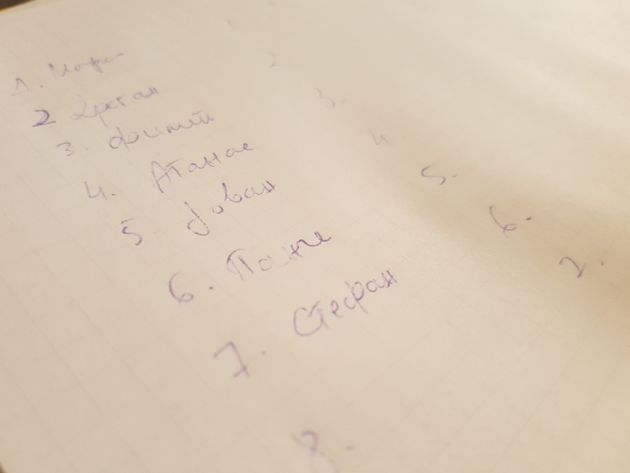 1.
2
3. Филип
4. Атанас
5 Јован
6. Панче
7. Стефан
8.
2
3.
4
5.
6.
7.